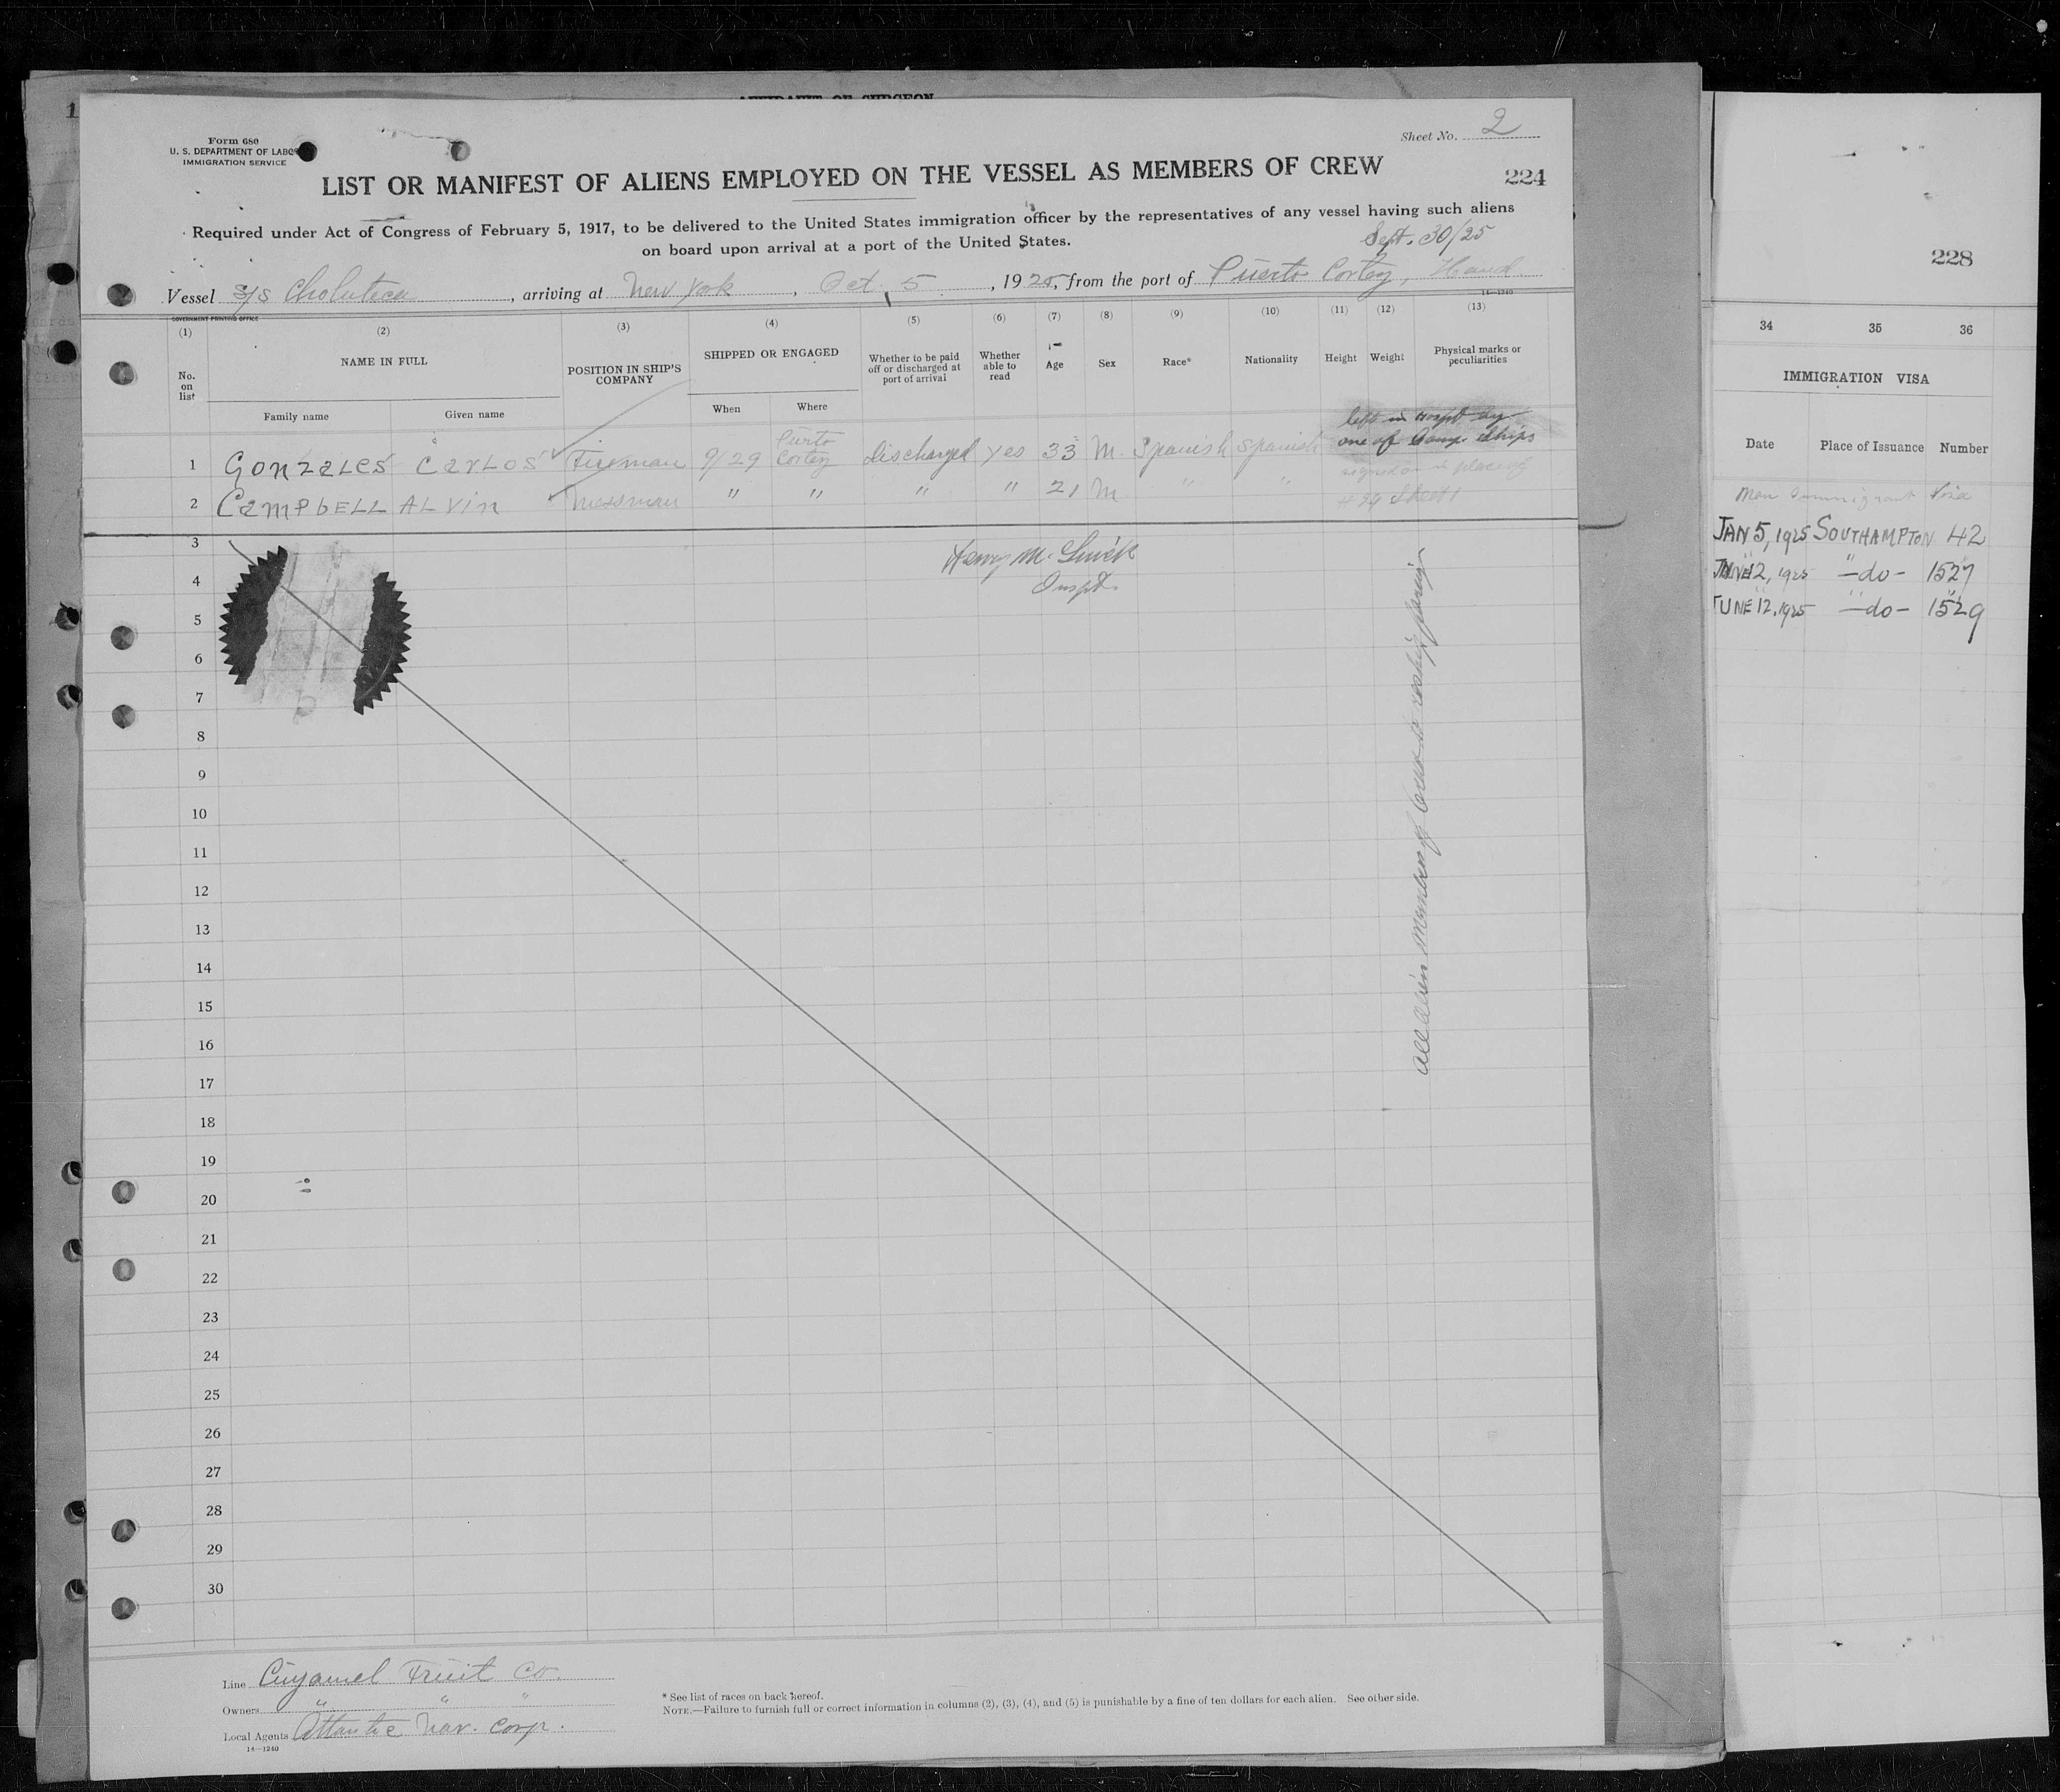 AFFIDAVIT OF SURGEON
1
Form 680
U. S. DEPARTMENT OF LABOR
IMMIGRATION SERVICE
Sheet No. 2
LIST OR MANIFEST OF ALIENS EMPLOYED ON THE VESSEL AS MEMBERS OF CREW
224
Required under Act of Congress of February 5, 1917, to be delivered to the United States immigration officer by the representatives of any vessel having such aliens
on board upon arrival at a port of the United States.
Sept. 30/25
Vessel S/S Choluteca, arriving at New York, Oct. 5, 1925, from the port of Puerto Cortez, Hond
14—1240
GOVERNMENT PRINTING OFFICE
(1) (2) (3) (4) (5) (6) (7) (8) (9) (10) (11) (12) (13)
No. on list
NAME IN FULL
Family name Given name
POSITION IN SHIP'S COMPANY
SHIPPED OR ENGAGED
When Where
Whether to be paid off or discharged at port of arrival
Whether able to read
Age
Sex
Race*
Nationality
Height
Weight
Physical marks or peculiarities
left in Hospt by
one of Comp. Ships
1 Gonzales Carlos Fireman 9/29 Puerto Cortez Discharged yes 33 M. Spanish Spanish
signed on in place of
2 Campbell Alvin Messman " " " " 21 M " "
# 29 Sheet 1
3
Henry M.
Inspt.
4
5
6
7
8
9
10
11
12
13
14
15
16
17
18
19
20
21
22
23
24
25
26
27
28
29
30
all alien members of Crew to reship foreign
Line Cuyamel Fruit Co.
Owners " " "
Local Agents Atlantic Nav. Corp.
14—1240
* See list of races on back hereof.
NOTE.—Failure to furnish full or correct information in columns (2), (3), (4), and (5) is punishable by a fine of ten dollars for each alien. See other side.
228
34 35 36
IMMIGRATION VISA
Date Place of Issuance Number
Non Immigrant Visa
JAN 5, 1925 SOUTHAMPTON 42
JUNE 12, 1925 —do— 1527
JUNE 12, 1925 —do— 1529